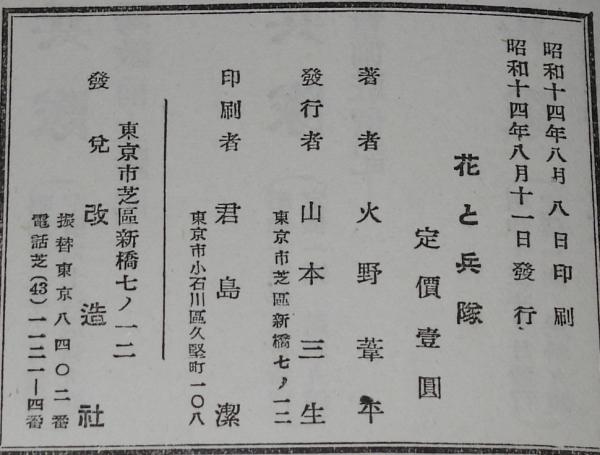 昭和十四年八月八日印刷
昭和十四年八月十一日發行
花と兵隊
定價壹圓
著者 火野葦平
發行者 山本三生
東京市芝區新橋七ノ一二
印刷者 君島潔
東京市小石川區久堅町一〇八
東京市芝區新橋七ノ一二
發兌 改造社
振替東京八四〇二番
電話芝(43)一一二一―四番